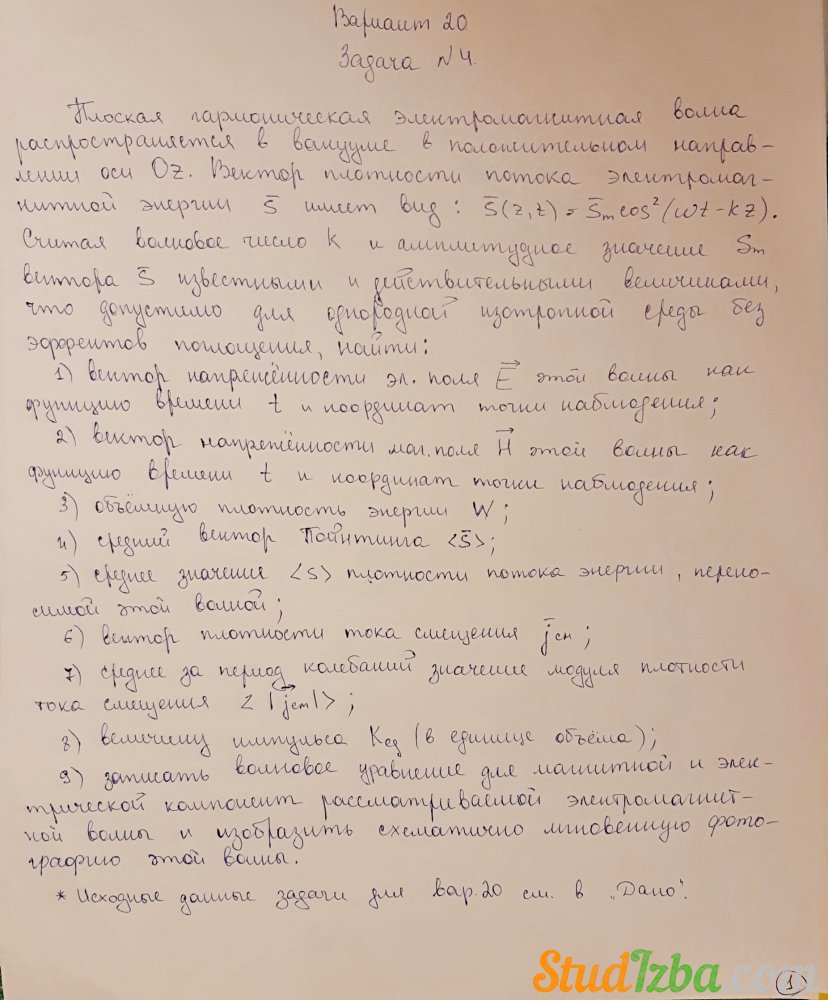 Вариант 20.
Задача №4.
Плоская гармоническая электромагнитная волна
распространяется в вакууме в положительном направ-
лении оси Oz. Вектор плотности потока электромаг-
нитной энергии S̄ имеет вид: S̄(z,t) = S̄m cos²(ωt-kz).
Считая волновое число k и амплитудное значение Sm
вектора S̄ известными и действительными величинами,
что допустимо для однородной изотропной среды без
эффектов поглощения, найти:
1) вектор напряжённости эл. поля E⃗ этой волны как
функцию времени t и координат точки наблюдения;
2) вектор напряжённости маг. поля H⃗ этой волны как
функцию времени t и координат точки наблюдения;
3) объёмную плотность энергии W;
4) средний вектор Пойнтинга <S̄>;
5) среднее значение <S> плотности потока энергии, перено-
симой этой волной;
6) вектор плотности тока смещения j̄см;
7) среднее за период колебаний значение модуля плотности
тока смещения <|j⃗см|>;
8) величину импульса Kед (в единице объёма);
9) записать волновое уравнение для магнитной и элек-
трической компонент рассматриваемой электромагнит-
ной волны и изобразить схематично мгновенную фото-
графию этой волны.
* Исходные данные задачи для вар. 20 см. в „Дано".
StudIzba.com
1